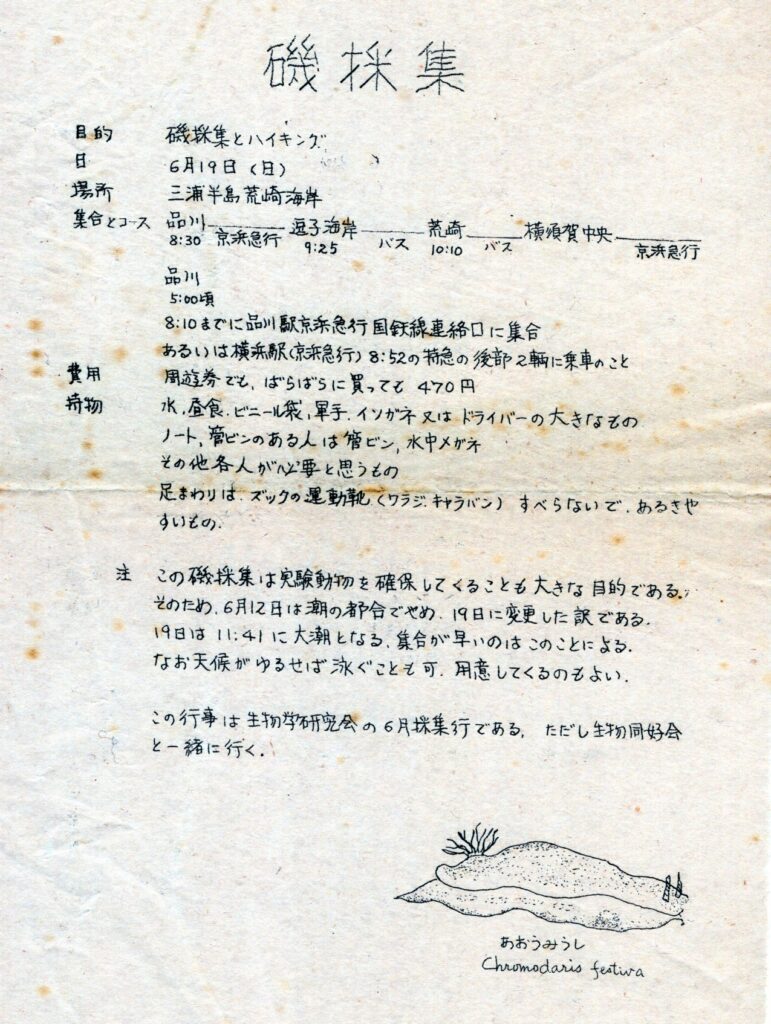 磯採集
目的 磯採集とハイキング
日 6月19日(日)
場所 三浦半島荒崎海岸
集合とコース 品川 逗子海岸 荒崎 横須賀中央
8:30 京浜急行 9:25 バス 10:10 バス 京浜急行
品川
5:00頃
8:10までに品川駅京浜急行国鉄線連絡口に集合
あるいは横浜駅(京浜急行)8:52の特急の後部2輌に乗車のこと
費用 周遊券でも,ばらばらに買っても 470円
持物 水,昼食,ビニール袋,軍手,イソガネ又はドライバーの大きなもの
ノート,管ビンのある人は管ビン,水中メガネ
その他各人が必要と思うもの
足まわりは,ズックの運動靴(ワラジ,キャラバン) すべらないで,あるきや
すいもの.
注 この磯採集は実験動物を確保してくることも大きな目的である.
そのため,6月12日は潮の都合でやめ,19日に変更した訳である.
19日は11:41に大潮となる.集合が早いのはこのことによる.
なお天候がゆるせば泳ぐことも可.用意してくるのもよい.
この行事は生物学研究会の6月採集行である,ただし生物同好会
と一緒に行く.
あおうみうし
Chromodaris festiva